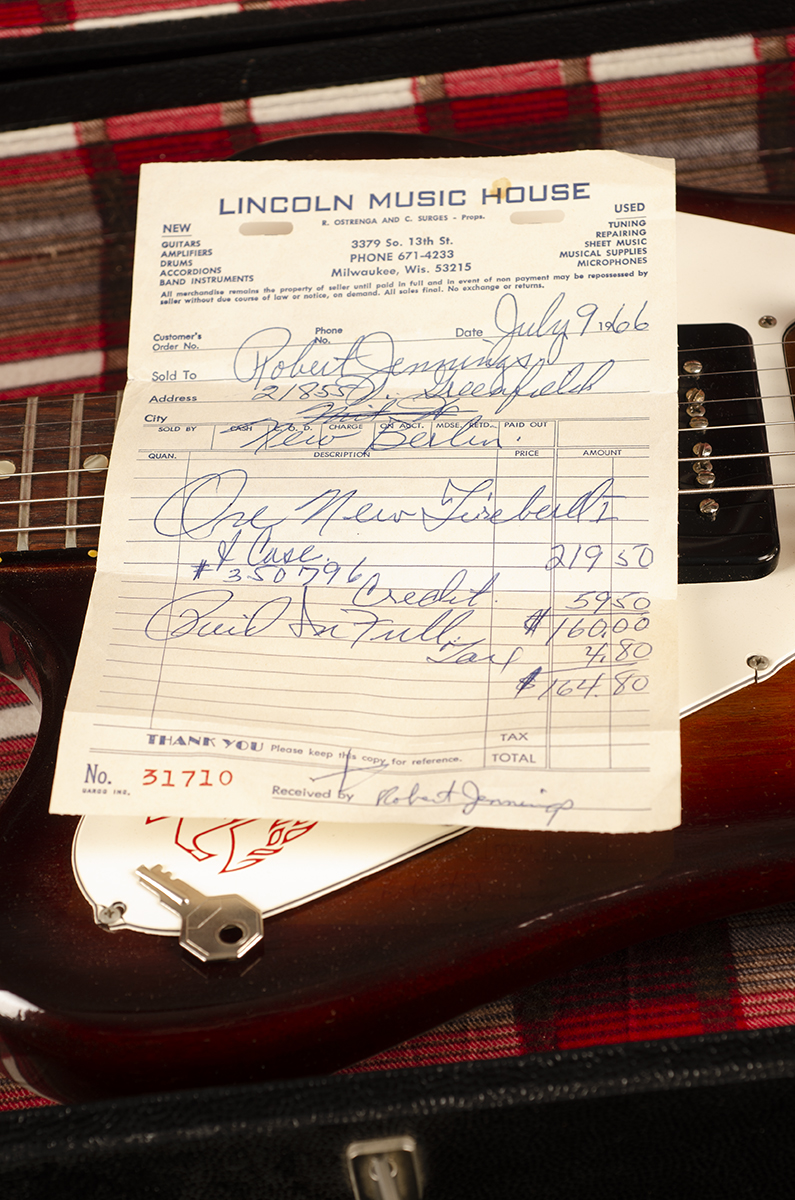 LINCOLN MUSIC HOUSE
R. OSTRENGA AND C. SURGES - Props.
NEW
GUITARS
AMPLIFIERS
DRUMS
ACCORDIONS
BAND INSTRUMENTS
3379 So. 13th St.
PHONE 671-4233
Milwaukee, Wis. 53215
USED
TUNING
REPAIRING
SHEET MUSIC
MUSICAL SUPPLIES
MICROPHONES
All merchandise remains the property of seller until paid in full and in event of non payment may be repossessed by
seller without due course of law or notice, on demand. All sales final. No exchange or returns.
Customer's
Order No.
Phone
No.
Date July 9 1966
Sold To Robert Jennings
Address 21855 W. Greenfield
City
New Berlin.
SOLD BY CASH C. O. D. CHARGE ON ACCT. MDSE. RETD. PAID OUT
QUAN. DESCRIPTION PRICE AMOUNT
One New Firebird I
& Case. 219 50
# 350796
Credit. 59 50
Paid In Full. $160.00
Tax 4.80
$164.80
THANK YOU Please keep this copy for reference.
TAX
TOTAL
No. 31710
GARCO INC.
Received by Robert Jennings